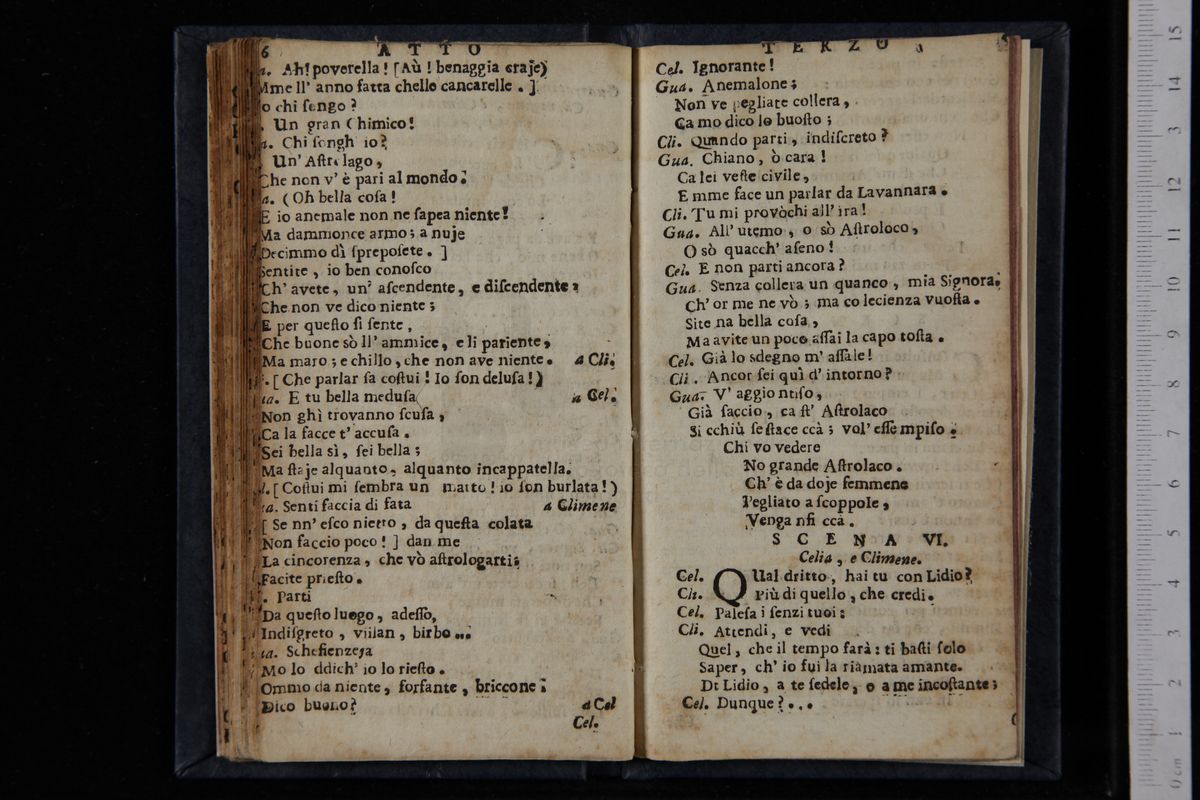 6 ATTO
a. Ah! poverella! [Aù! benaggia craje)
Mme ll' anno fatta chello cancarelle. ]
o chi ſongo?
. Un gran Chimico!
a. Chi ſongh io?
Un' Aſtrolago,
Che non v' è pari al mondo.
a. (Oh bella coſa!
E io anemale non ne ſapea niente!
Ma dammonce armo; a nuje
Decimmo dì ſpropoſete. ]
Sentite, io ben conoſco
Ch' avete, un' aſcendente, e diſcendente;
Che non ve dico niente;
E per queſto ſi ſente,
Che buone sò ll' ammice, e li pariente,
Ma maro; e chillo, che non ave niente. a Cli.
. [ Che parlar fa coſtui! Io ſon deluſa!)
ua. E tu bella meduſa a Cel.
Non ghì trovanno ſcuſa,
Ca la facce t' accuſa.
Sei bella sì, ſei bella;
Ma ſtaje alquanto, alquanto incappatella.
l. [ Coſtui mi ſembra un matto! io ſon burlata!)
ua. Senti faccia di fata a Climene
[ Se nn' eſco nietto, da queſta colata
Non faccio poco! ] dan me
La cincorenza, che vò aſtrologarti;
Facite prieſto.
. Parti
Da queſto luogo, adeſſo,
Indiſgreto, villan, birbo...
ua. Schefienzeja
Mo lo ddich' io lo rieſto.
Ommo da niente, forfante, briccone.
Dico buono? a Cel
Cel.
TERZO
Cel. Ignorante!
Gua. Anemalone;
Non ve pegliate collera,
Ca mo dico lo buoſto;
Cli. Quando parti, indiſcreto?
Gua. Chiano, ò cara!
Ca lei veſte civile,
E mme face un parlar da Lavannara.
Cli. Tu mi provòchi all' ira!
Gua. All' utemo, o sò Aſtroloco,
O sò quacch' aſeno!
Cel. E non parti ancora?
Gua. Senza collera un quanco, mia Signora,
Ch' or me ne vò; ma co lecienza vuoſta.
Site na bella coſa,
Ma avite un poco aſſai la capo toſta.
Cel. Già lo sdegno m' aſſale!
Cli. Ancor ſei quì d' intorno?
Gua. V' aggio ntiſo,
Già ſaccio, ca ſt' Aſtrolaco
Si cchiù ſeſtace ccà; vol' eſſe mpiſo.
Chi vo vedere
No grande Aſtrolaco.
Ch' è da doje femmene
Pegliato a ſcoppole,
Venga nſi cca.
SCENA VI.
Celia, e Climene.
Cel. QUal dritto, hai tu con Lidio?
Cli. Più di quello, che credi.
Cel. Paleſa i ſenzi tuoi:
Cli. Attendi, e vedi
Quel, che il tempo farà: ti baſti ſolo
Saper, ch' io fui la riamata amante.
Di Lidio, a te fedele, o a me incoſtante;
Cel. Dunque?...
15
14
13
12
11
10
9
8
7
6
5
4
3
2
1
0 cm